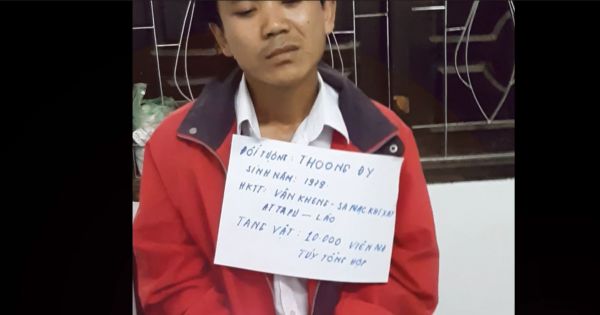 ĐỐI TƯỢNG: THOONG ĐY
SINH NĂM: 1979
HKTT: VĂN KHENG - SA NẠC KHI XAY
ATTAPU - LÀO
TANG VẬT: 10.000 VIÊN MA
TÚY TỔNG HỢP